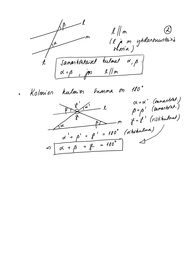 β
l
l ∥ m
②
α
m
(l ja m yhdensuuntaisia suoria)
Samankohtaiset kulmat α, β
α = β, jos l ∥ m
• Kolmion kulmien summa on 180°
l
m
α = α' (samankoht.)
β = β' (samankoht.)
γ = γ' (ristikulmat)
α' + β' + γ' = 180° (oikokulma)
α + β + γ = 180°